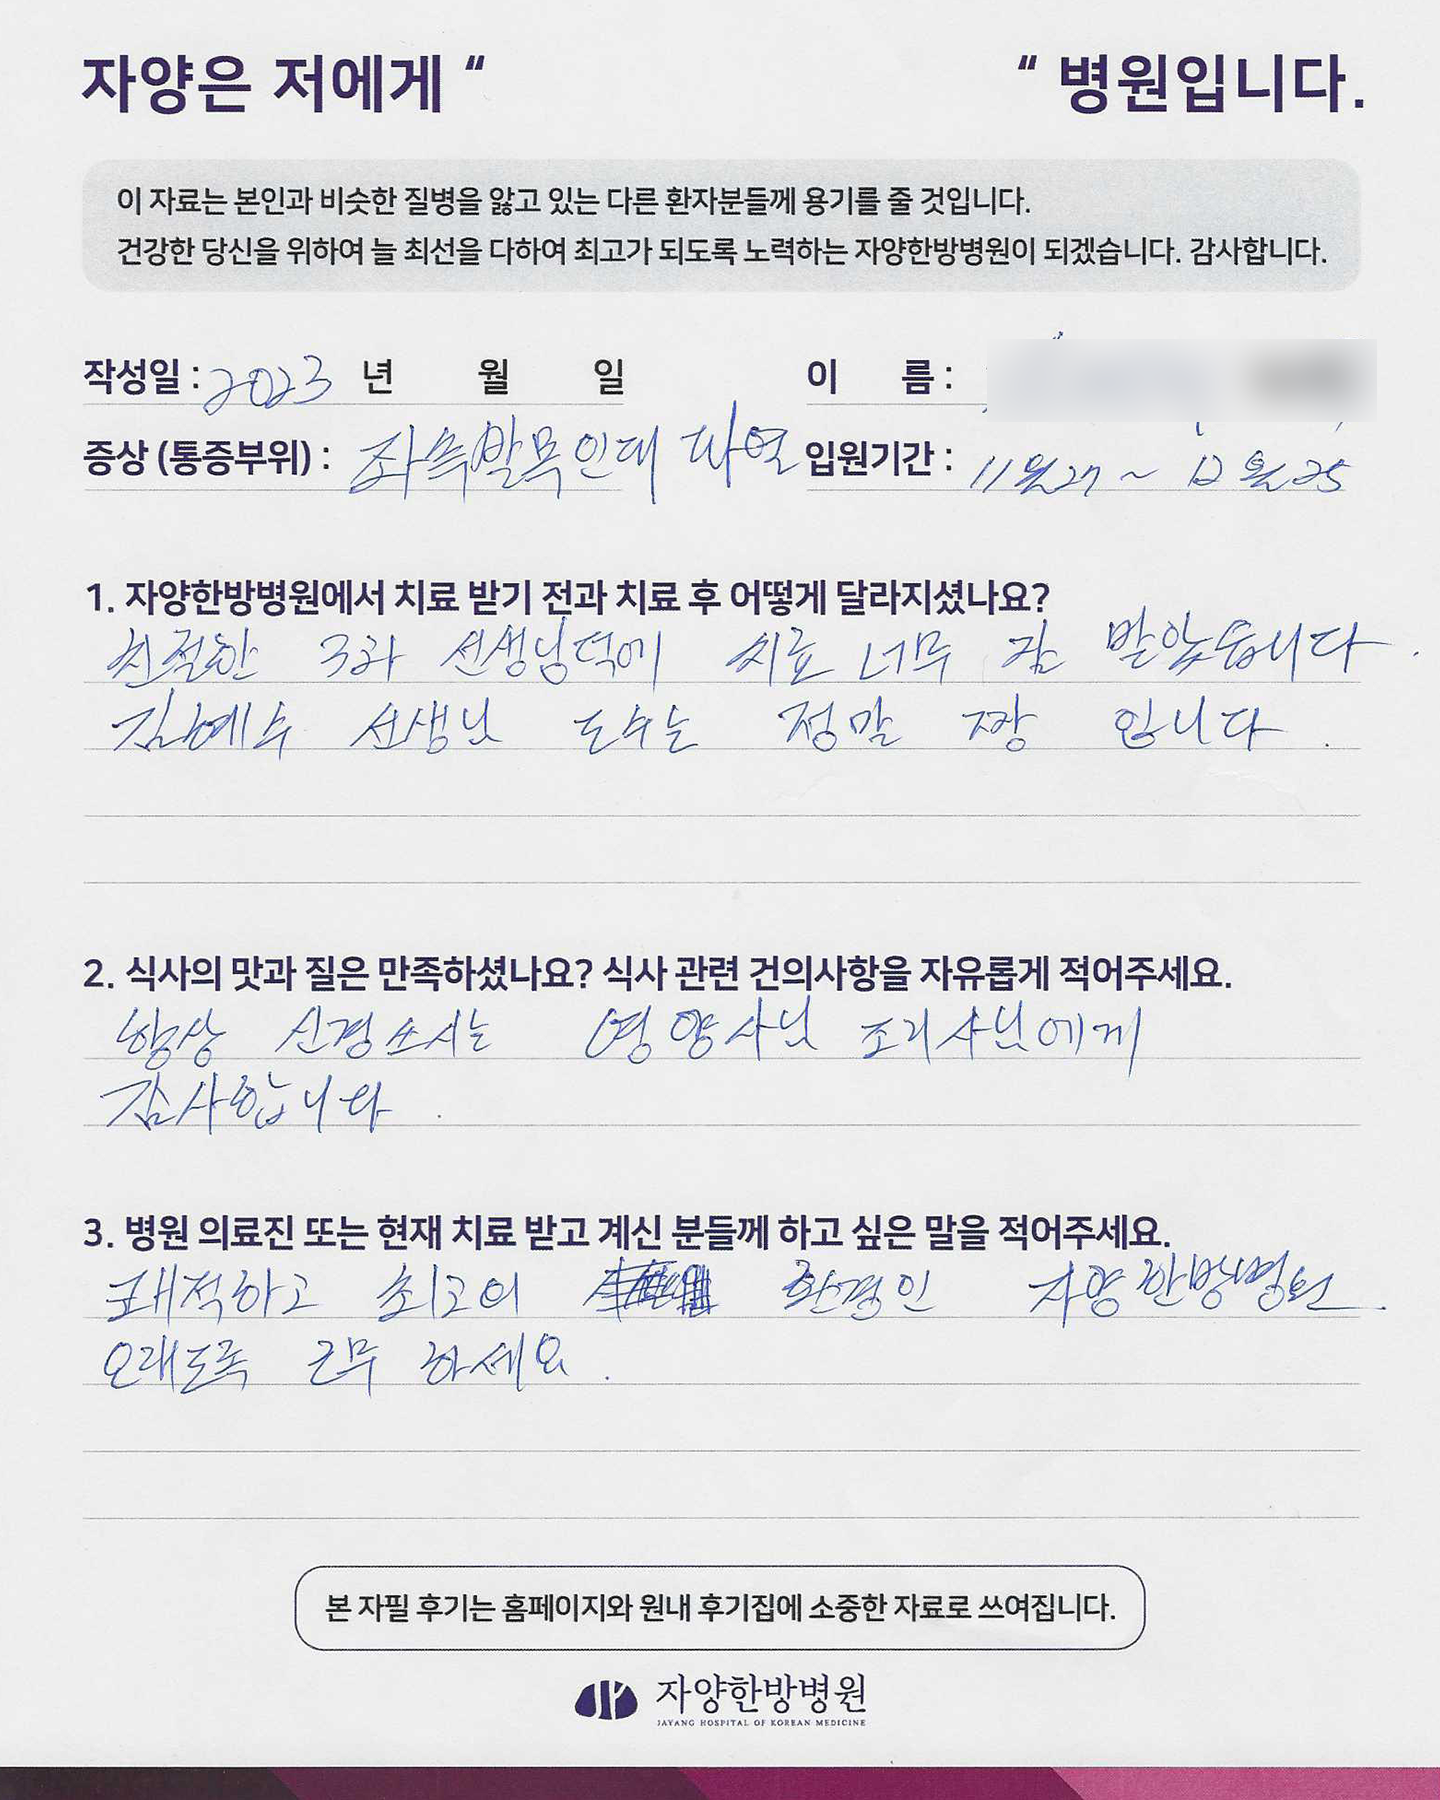 자양은 저에게 “ “ 병원입니다.
이 자료는 본인과 비슷한 질병을 앓고 있는 다른 환자분들께 용기를 줄 것입니다.
건강한 당신을 위하여 늘 최선을 다하여 최고가 되도록 노력하는 자양한방병원이 되겠습니다. 감사합니다.
작성일 : 2023 년 월 일 이 름 :
증상 (통증부위) : 좌측발목인대 파열 입원기간 : 11월27 ~ 12월25
1. 자양한방병원에서 치료 받기 전과 치료 후 어떻게 달라지셨나요?
친절한 3과 선생님덕에 치료 너무 잘 받았습니다.
김예수 선생님 도수는 정말 짱 입니다.
2. 식사의 맛과 질은 만족하셨나요? 식사 관련 건의사항을 자유롭게 적어주세요.
항상 신경쓰시는 영양사님 조리사님에게
감사합니다.
3. 병원 의료진 또는 현재 치료 받고 계신 분들께 하고 싶은 말을 적어주세요.
쾌적하고 최고의 환경인 자양한방병원.
오래도록 근무 하세요.
본 자필 후기는 홈페이지와 원내 후기집에 소중한 자료로 쓰여집니다.
자양한방병원
JAYANG HOSPITAL OF KOREAN MEDICINE